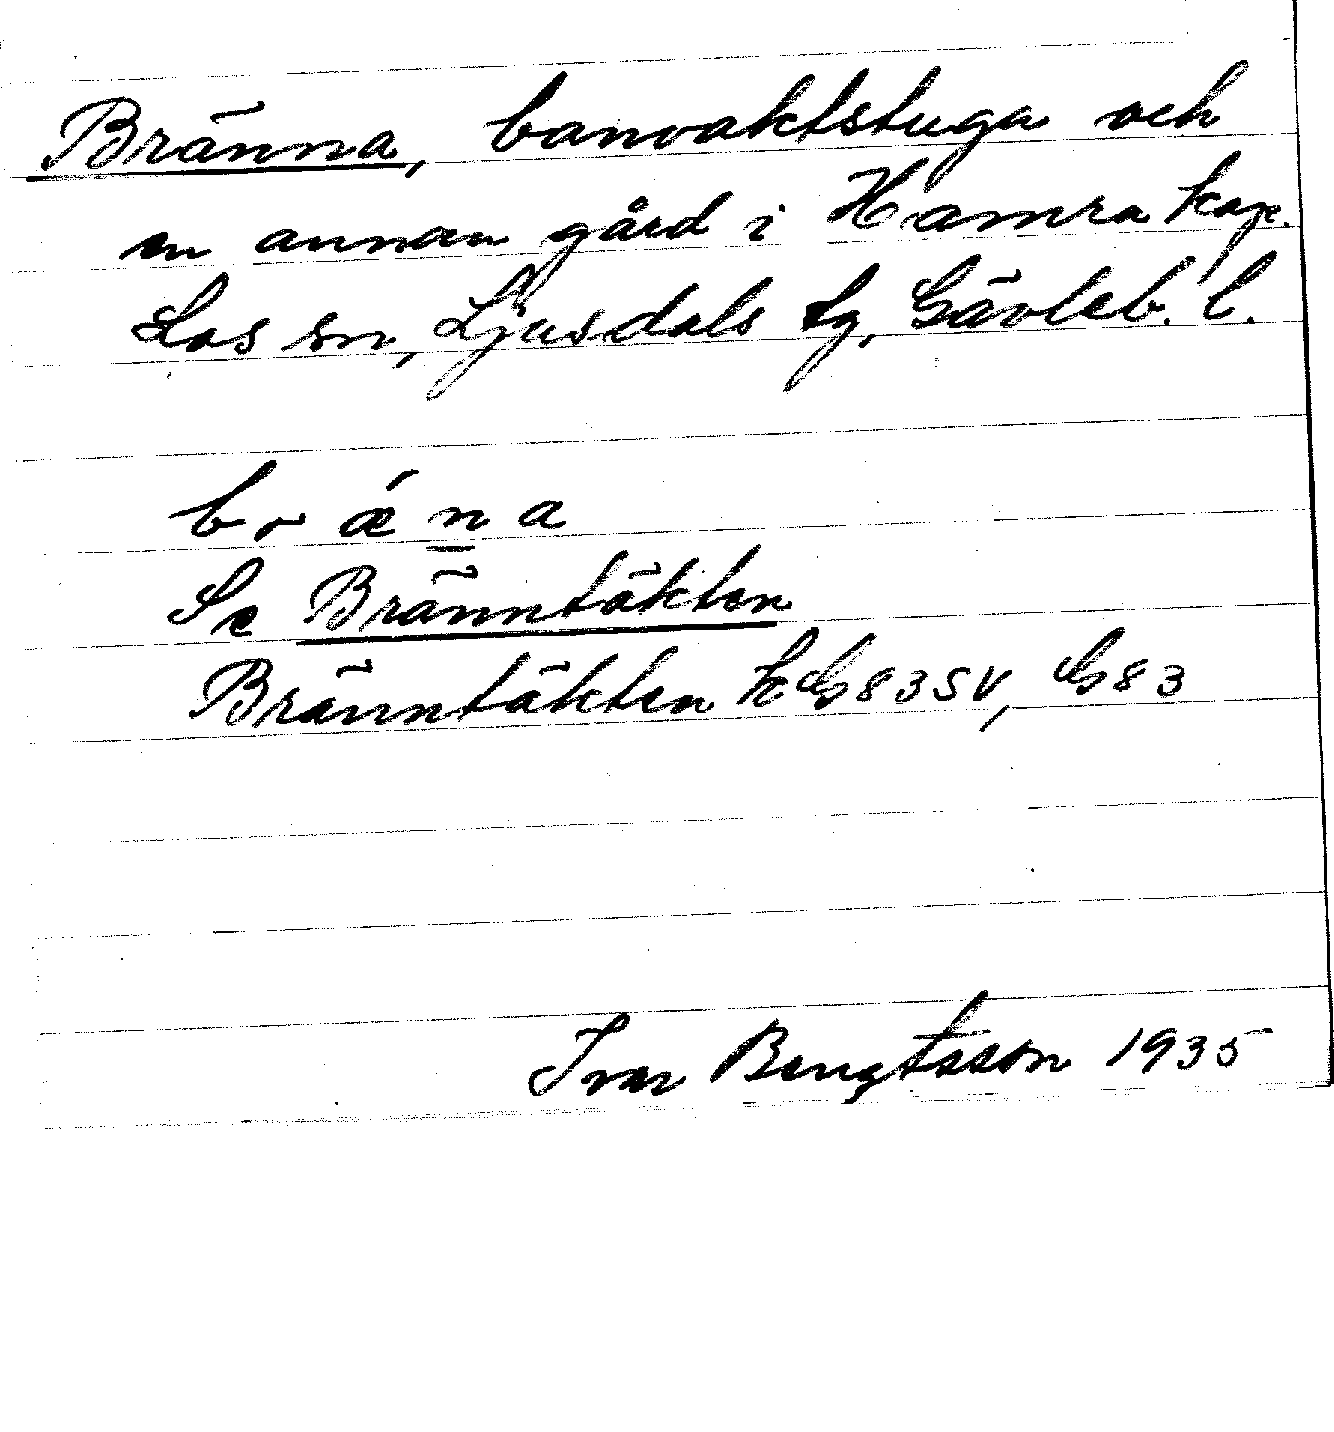 Bränna, banvaktstuga och
en annan gård i Hamra kap.
Los sn, Ljusdals tg, Gävleb. l.
b r ǽ n a
Se Bränntäkten
Bränntäkten k GS 83 SV, GS 83
Ivar Bengtsson 1935